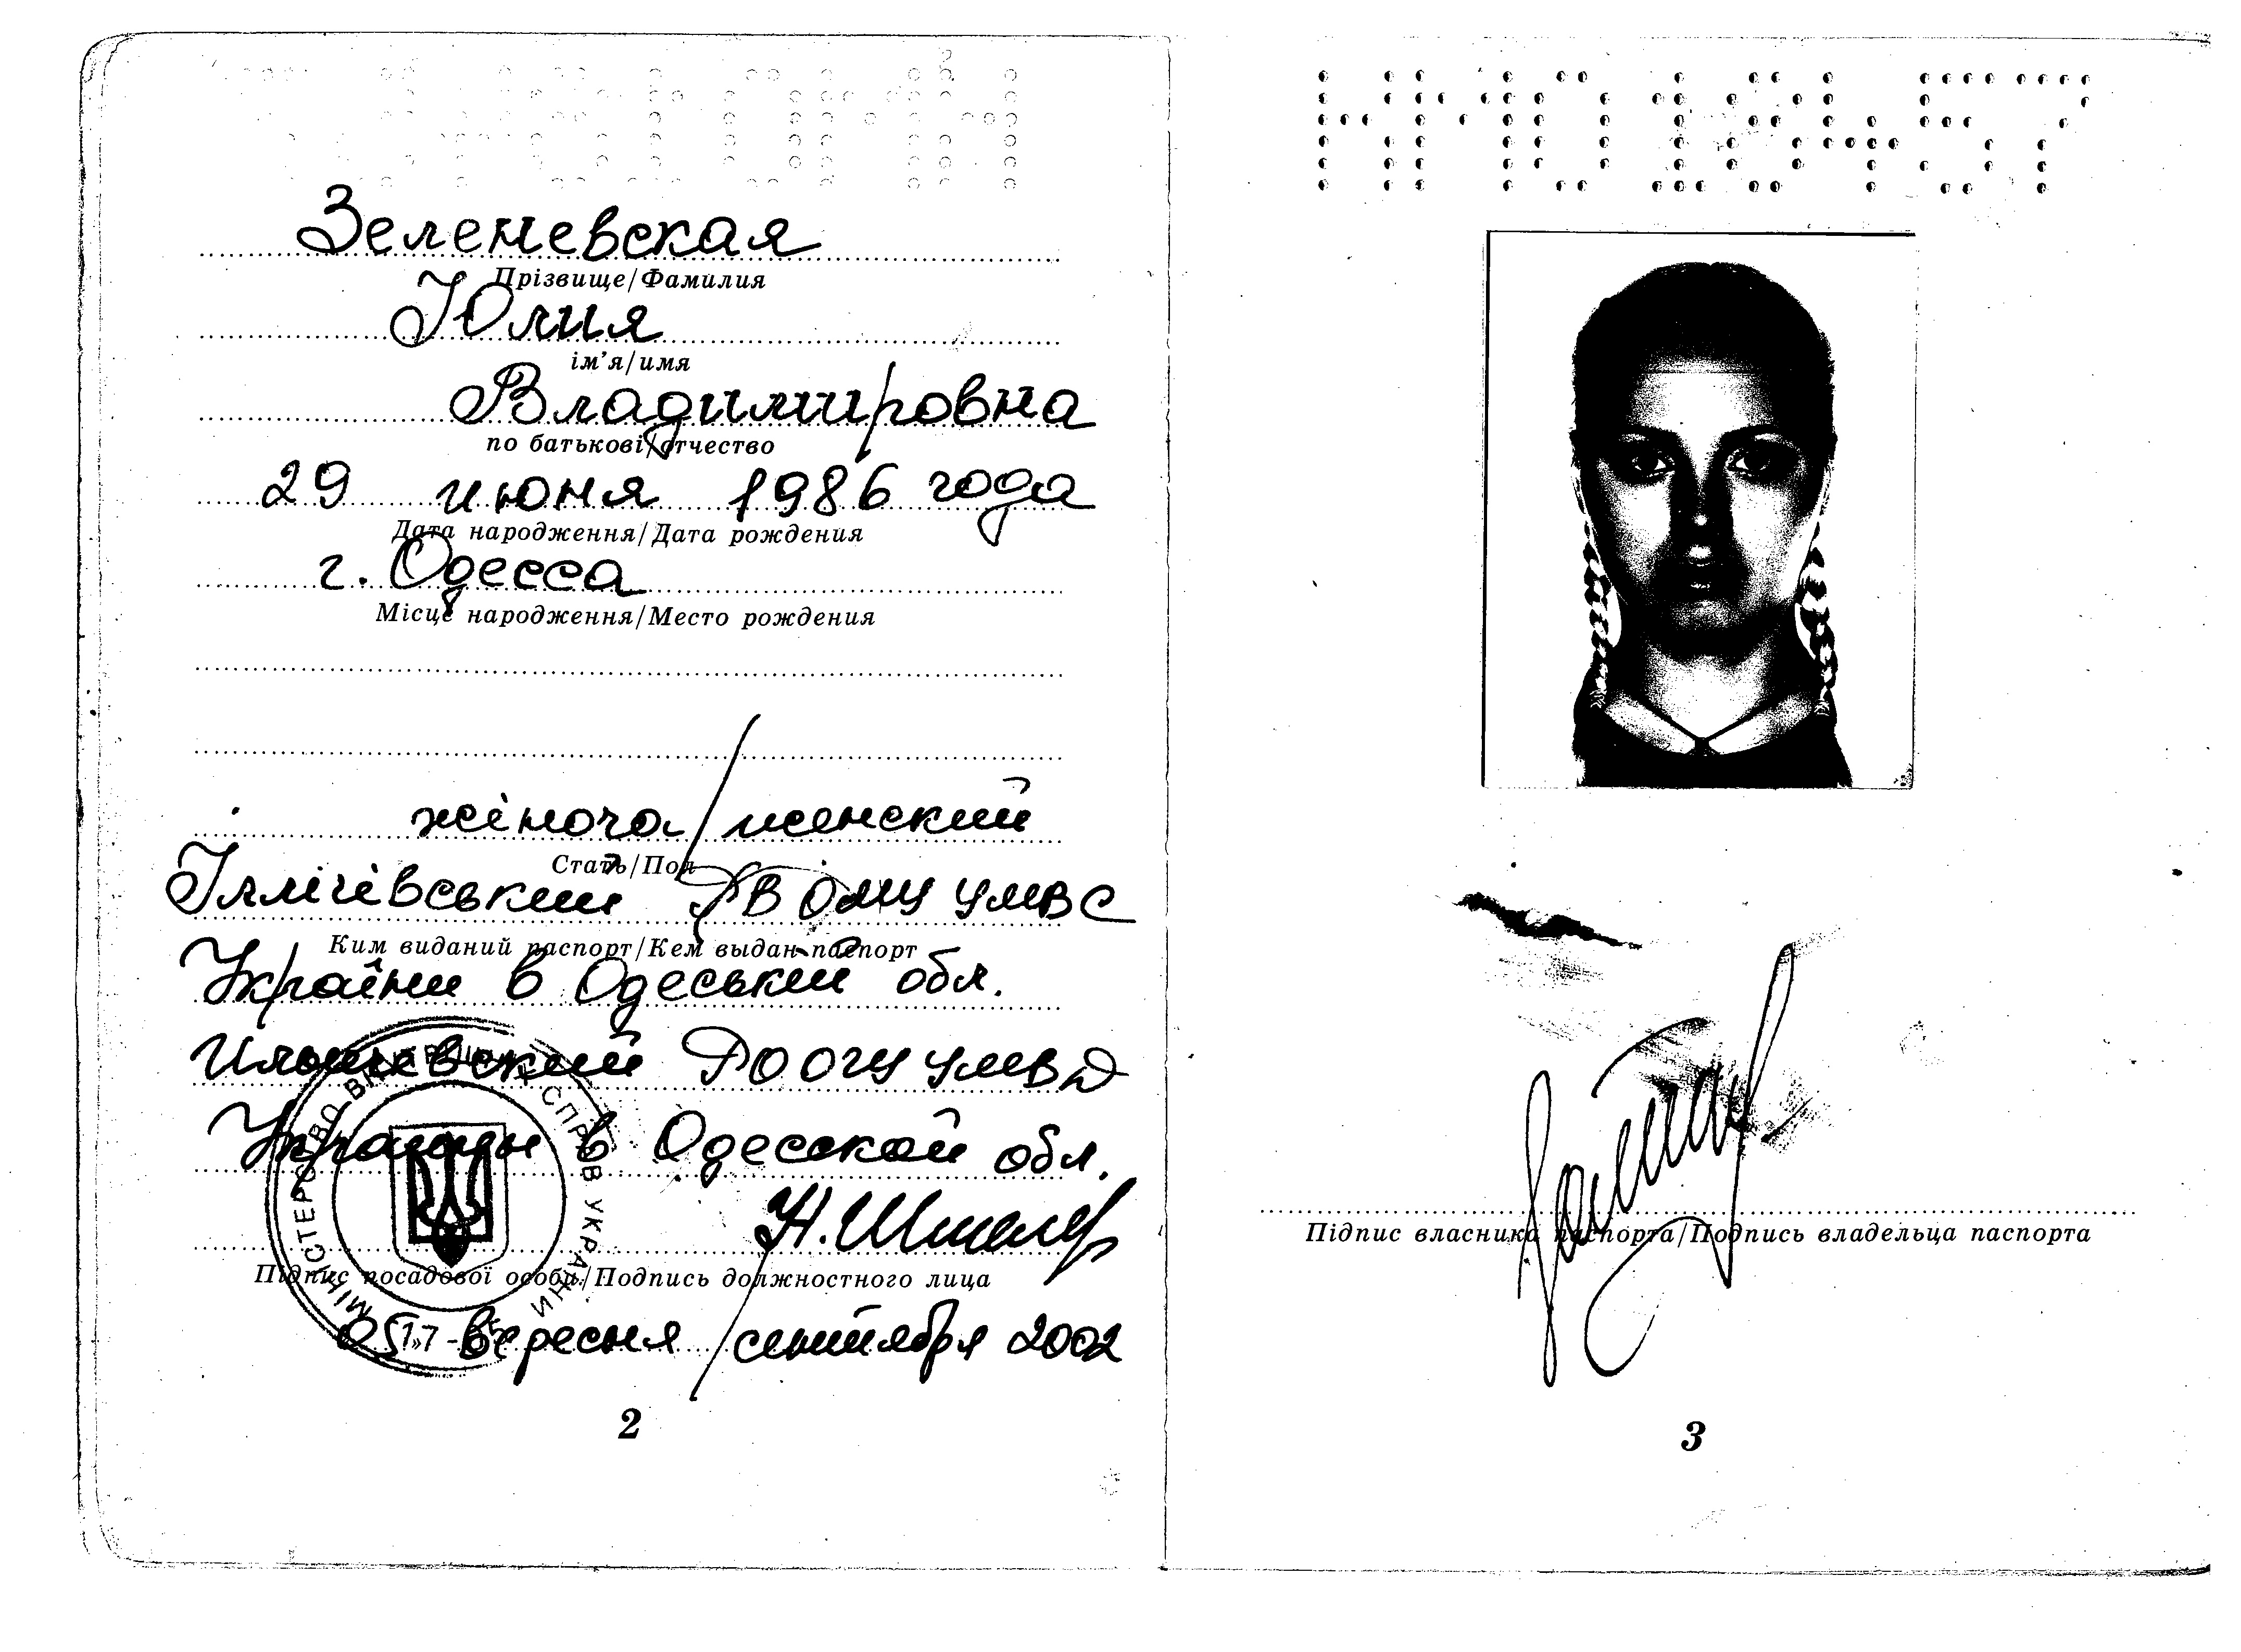 Зеленевская
Прізвище/Фамилия
Юлия
ім'я/имя
Владимировна
по батькові/отчество
29 июня 1986 года
Дата народження/Дата рождения
г. Одесса
Місце народження/Место рождения
жіноча/женский
Стать/Пол
Іллічівський РВ ОМУ УМВС
Ким виданий паспорт/Кем выдан паспорт
України в Одеській обл.
Ильичевский РО ОГУ УМВД
Украины в Одесской обл.
МІНІСТЕРСТВО ВНУТРІШНІХ СПРАВ УКРАЇНИ
Підпис посадової особи/Подпись должностного лица
05 вересня/сентября 2002
2
Підпис власника паспорта/Подпись владельца паспорта
3